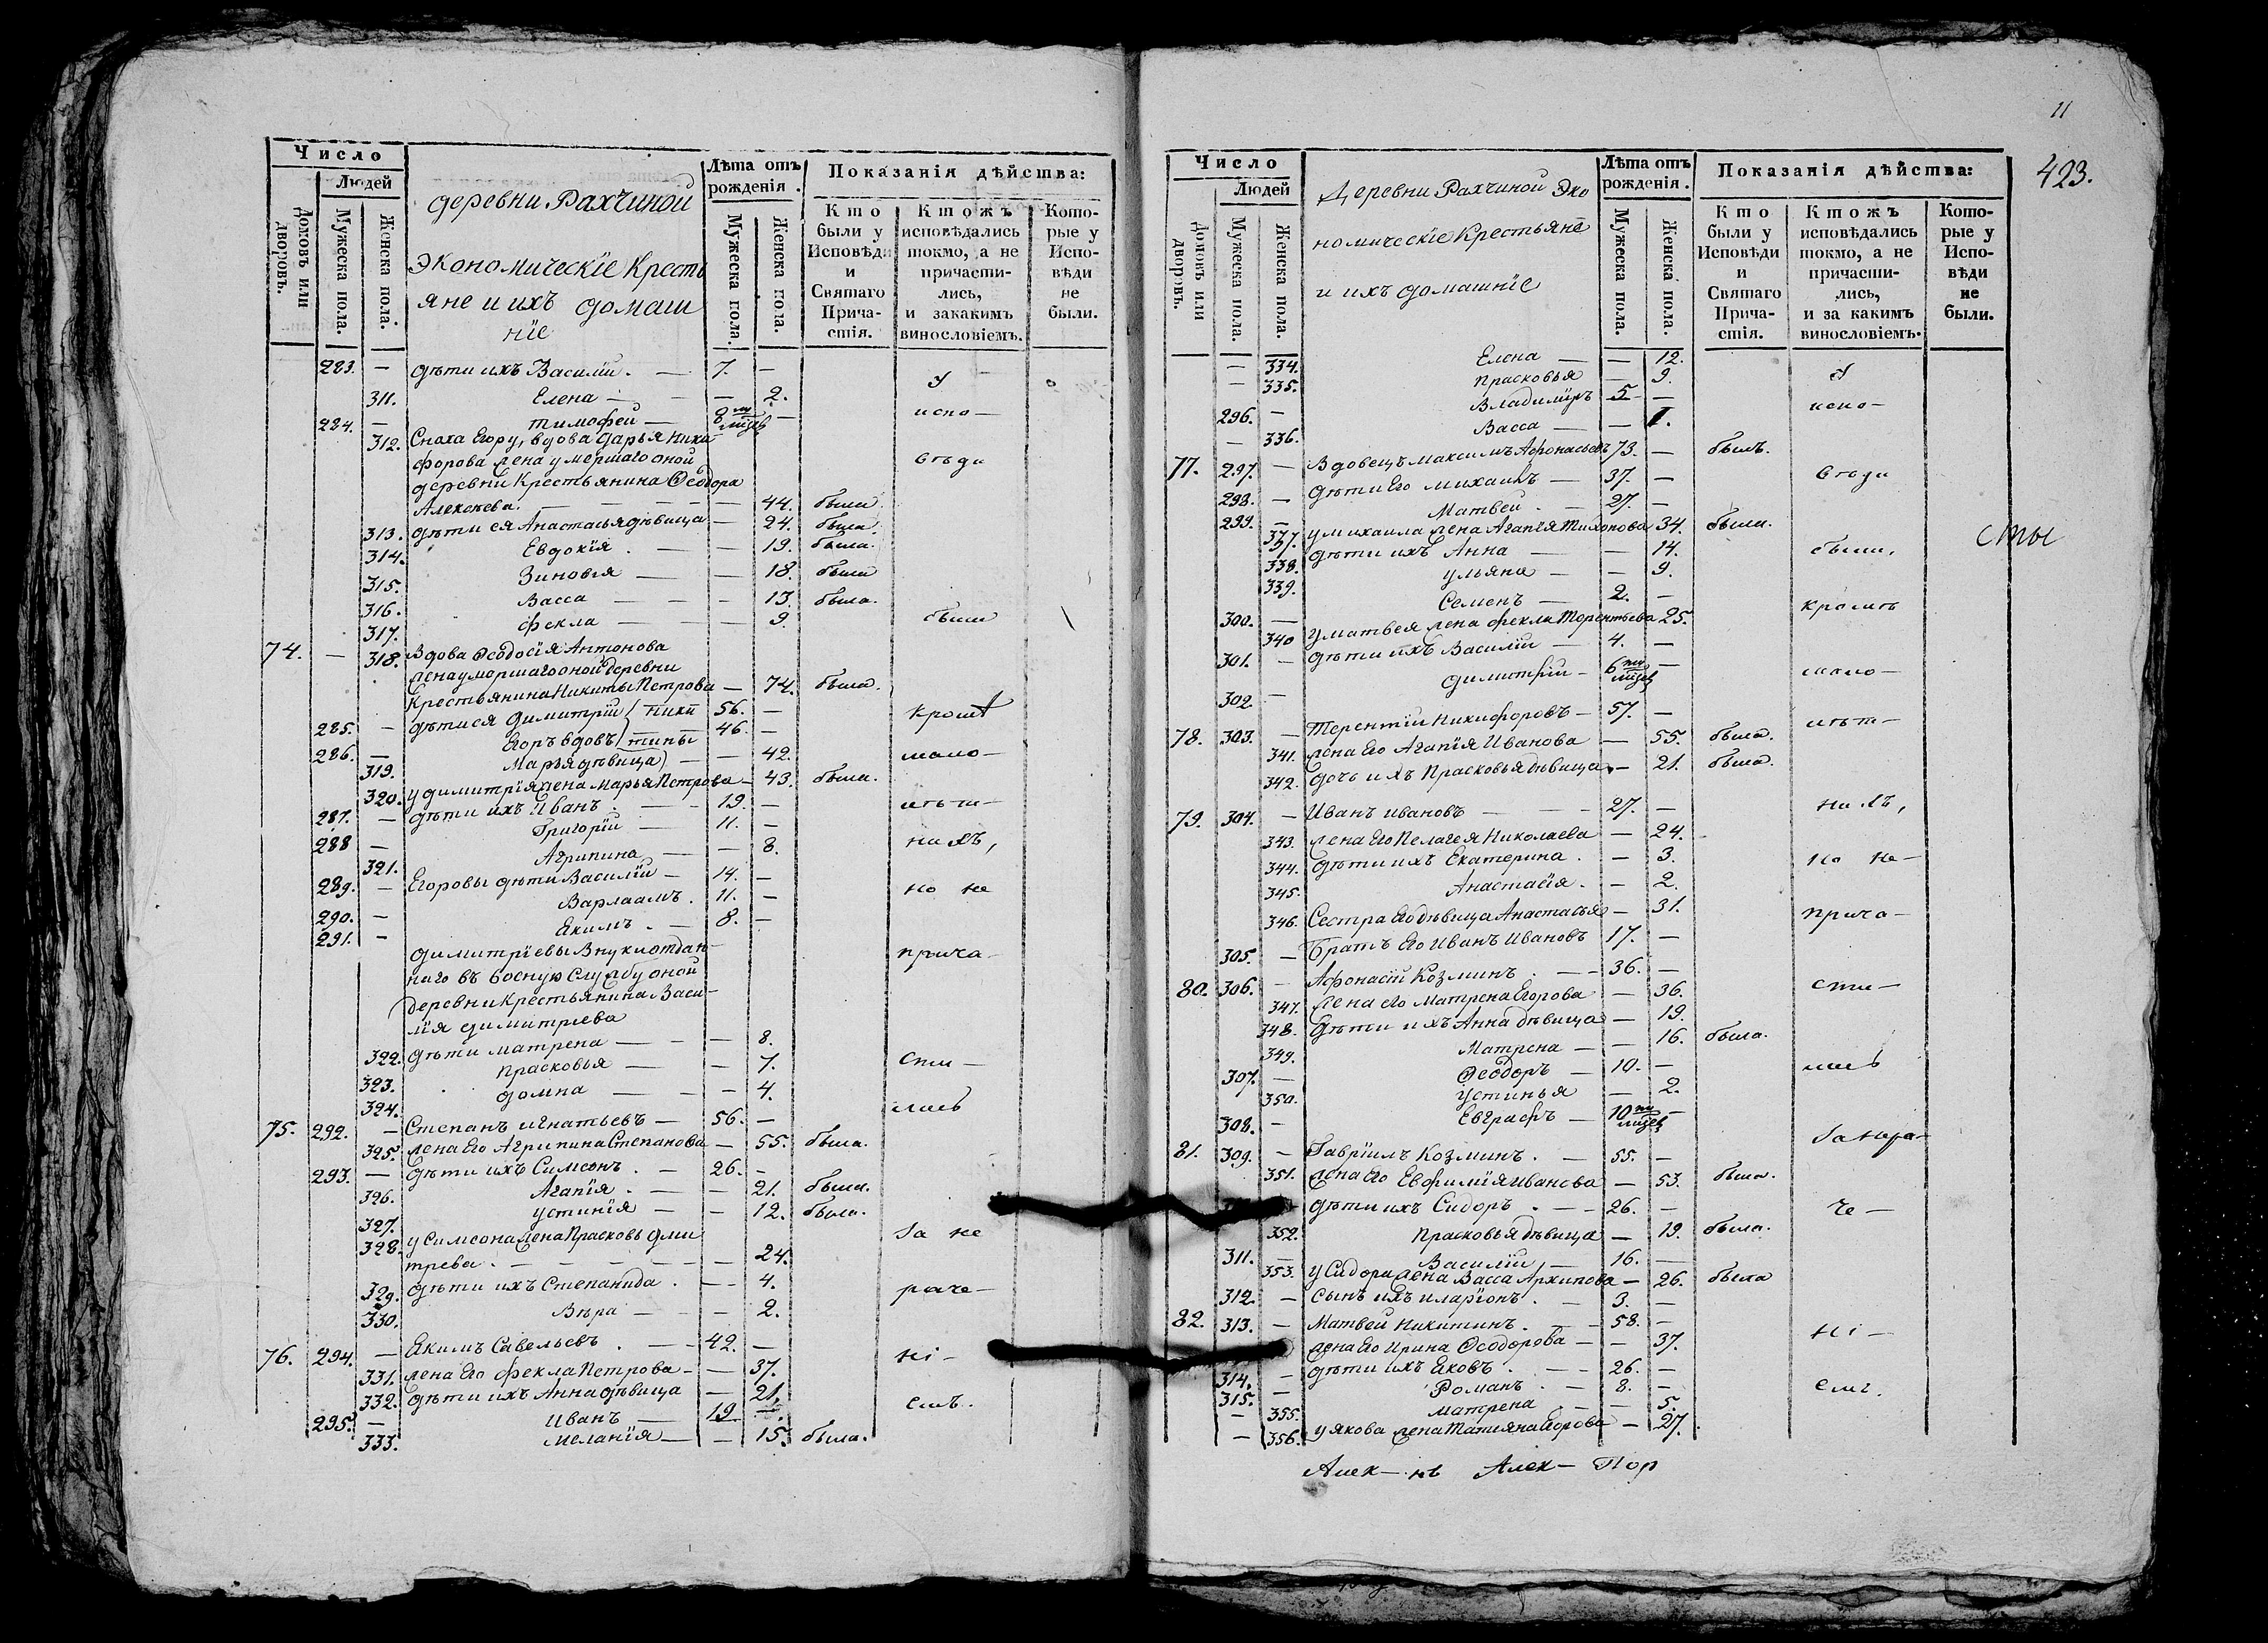 Число
Людей
Домовъ или дворовъ.
Мужеска пола.
Женска пола.
деревни Рахчиной
экономическіе Кресть
яне и ихъ домаш
ніе
Лѣта отъ рожденія.
Мужеска пола.
Женска пола.
Показанія дѣйства:
Кто были у Исповѣди и Святаго Прича-стія.
Ктожъ исповѣдались токмо, а не причасти-лись, и закакимъ винословіемъ.
Кото-рые у Испо-вѣди не были.
283. — дѣти ихъ Василій. — 7. —
У
311. Елена — — 2.
284. — Тимофей — 8 ми мцев —
испо—
312. Сноха Егору, вдова Дарья Ники
форова жена умершаго оной
вѣди
деревни Крестьянина Ѳеодора
Алексѣева. — — 44. была.
313. дѣти ея Анастасья дѣвица — 24. была.
314. Евдокія. — — 19. была.
315. Зиновія — — 18. была
316. Васса — — 13. была.
317. Фекла — — 9.
были
74. — 318. Вдова Ѳеодосія Антонова
жена умершаго оной деревни
Крестьянина Никиты Петрова — 74. была.
285. — дѣти ея Димитрій Ники 56. —
кромѣ
286. — Егоръ вдовъ тины 46. —
319. Марья дѣвица — — 42.
мало—
320. у димитрія жена Марья Петрова — 43. была.
287. — дѣти ихъ Иванъ. — 19. —
лѣт—
288 — Григорій — 11. —
321. Агрипина — — 8.
нихъ,
289. — Егоровы дѣти Василій — 14. —
290. — Варлаамъ. 11. —
но не
291. — Екимъ. — 8. —
димитріевы внуки отдан—
прича—
наго въ воєную службу оной
деревни Крестьянина Васи—
лія димитріева
322. дѣти Матрена — — 8.
323. Прасковья — — 7.
сти—
324. домна — — 4.
75. 292. — Степанъ игнатьевъ — 56. —
лись
325. жена Его Агрипина Степанова — 55. была.
293. — дѣти ихъ Симеонъ. — 26. —
326. Агапія. — — 21. была.
327. устинія — — 12. была.
328. у Симеона жена Прасковья дми
за не
трева. — — 24.
329. дѣти ихъ Степанида. — 4.
раче—
330. Вѣра — — 2.
76. 294. — Екимъ Савельевъ. — 42. —
ні—
331. жена Его Фекла Петрова — 37.
332. дѣти ихъ Анна дѣвица — 21.
295. — Иванъ — 19. —
емъ.
333. Меланія — — 15. была.
11
423.
Число
Людей
Домовъ или дворовъ.
Мужеска пола.
Женска пола.
Деревни Рахчиной Эко
номическіе Крестьяне
и ихъ домашніе
Лѣта отъ рожденія.
Мужеска пола.
Женска пола.
Показанія дѣйства:
Кто были у Исповѣди и Святаго Прича-стія.
Ктожъ исповѣдались токмо, а не причасти-лись, и за какимъ винословіемъ.
Кото-рые у Испо-вѣди не были.
— 334. Елена — — 12.
У
— 335. Прасковья — 9.
296. — Владиміръ 5 —
испо—
— 336. Васса — — 1.
77. 297. — Вдовецъ Максимъ Афонасьевъ 73. — былъ.
298. — дѣти Его Михаилъ — 37. —
вѣди
299. — Матвей. — 27. —
337. у михаила жена Агапія Тихонова 34. была.
сты
338. дѣти ихъ Анна — — 14.
были,
339. ульяна — — 9.
300. — Семенъ — 2. —
кромѣ
340 у матвея жена Фекла Терентьева 25.
301. — дѣти ихъ Василій — 4. —
302. — димитрій — 6 ти мцев —
мало—
78. 303. — Терентій Никифоровъ — 57. —
лѣт—
341. жена Его Агапія Иванова — 55. была.
342. дочь ихъ Прасковья дѣвица — 21. была.
79. 304. — Иванъ ивановъ — 27. —
нихъ,
343. жена Его Пелагея Николаева — 24.
344. дѣти ихъ Екатерина. — 3.
но не—
345. Анастасія. — 2.
346. Сестра Его дѣвица Анастасья — 31.
прича—
305. — Братъ Его Иванъ Ивановъ 17. —
80. 306. — Афонасій Козминъ. — 36. —
сти—
347. жена его Матрена Егорова — 36.
348. дѣти ихъ Анна дѣвица — 19.
349. Матрена — — 16. была.
307. — Ѳеодоръ — 10. —
лись
350. Устинья — 2.
308. — Евграфъ — 10 ти мцев —
81. 309. — Гавріилъ Козминъ. — 55. —
за нера—
351. жена Его Евфимія Иванова — 53. была.
дѣти ихъ Сидоръ. — 26. —
че—
352. Прасковья дѣвица — 19. была.
311. — Василій — 16. —
353. у Сидора жена Васса Архипова — 26. была
312. — сынъ ихъ иларіонъ. — 3. —
82. 313. — Матвей Никитинъ. — 58. —
ні—
жена Его Ирина Ѳеодорова — 37.
314. — дѣти ихъ Яковъ. — 26. —
315. — Романъ. — 8. —
емъ.
— 355. Матрена — — 5.
— 356. у якова жена Татияна Егорова — 27.